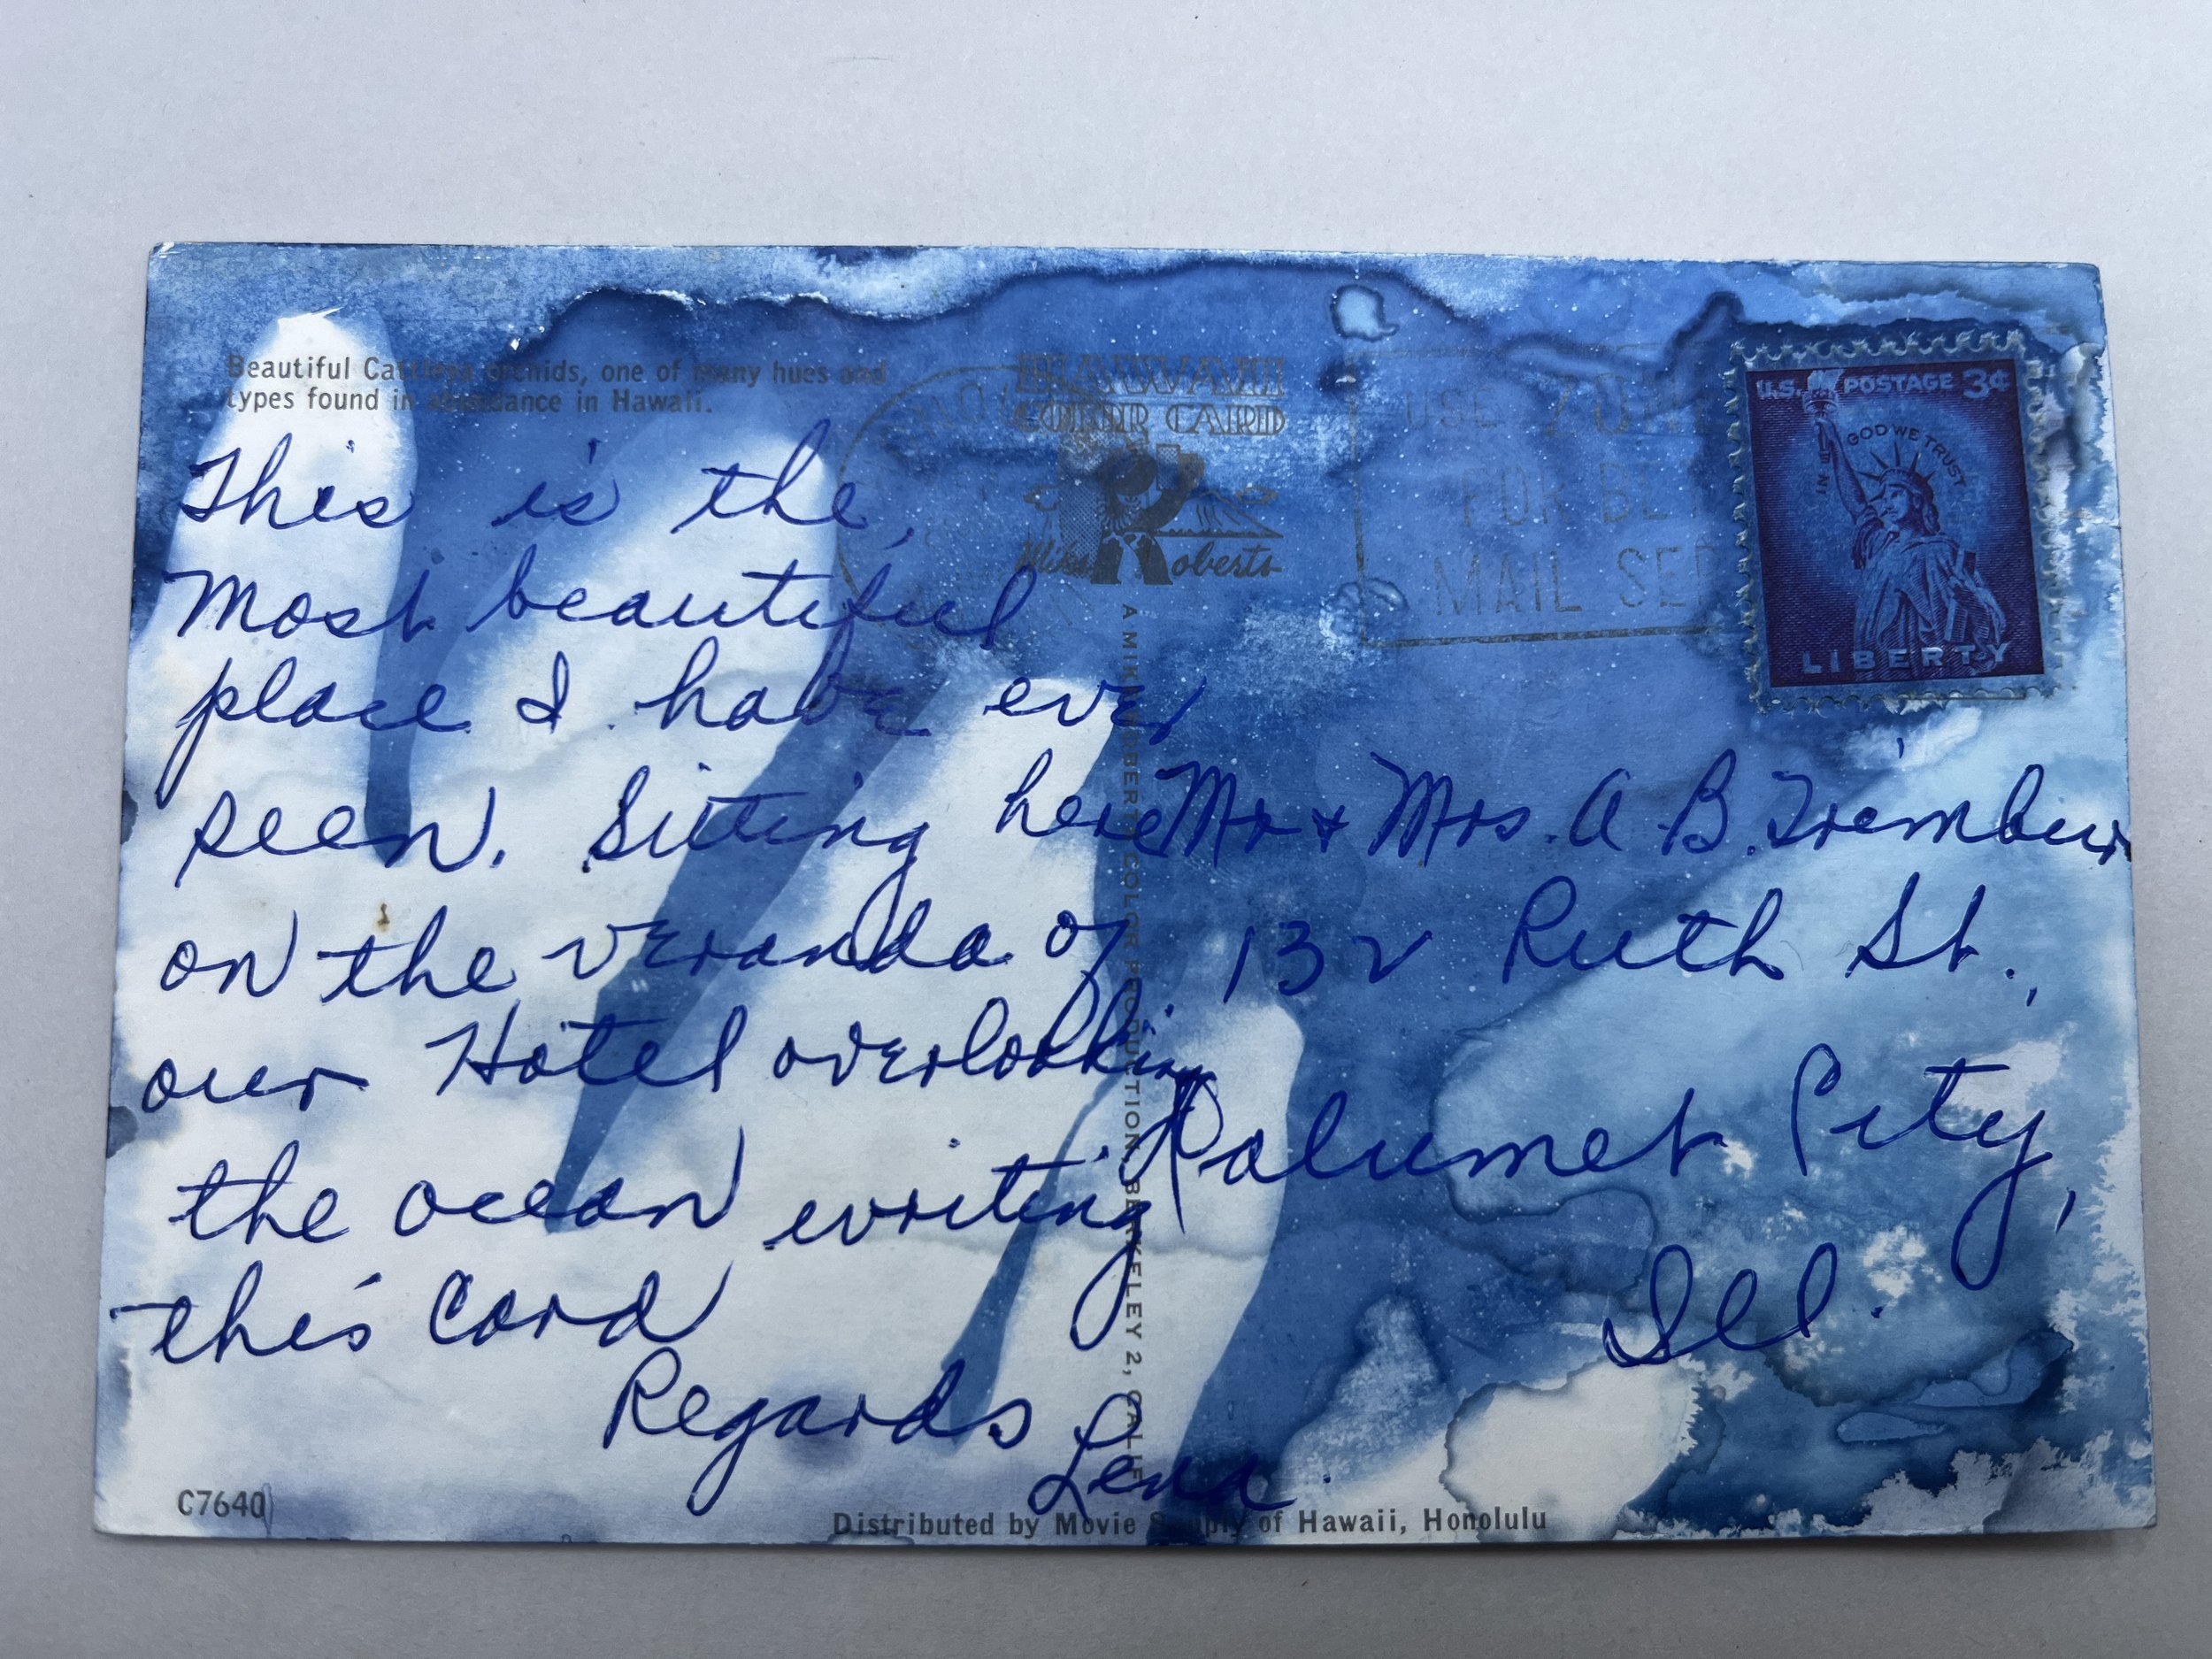 Beautiful Cattleya orchids, one of many hues and
types found in abundance in Hawaii.
This is the
Most beautiful
place I have ever
seen. Sitting here
on the veranda of
our Hotel overlooking
the ocean writing
this Card
Regards
Lena
C7640
HAWAII
COLOR CARD
Mike Roberts
A MIKE ROBERTS COLOR PRODUCTION, BERKELEY 2, CALIF.
USE
FOR
MAIL
U.S. POSTAGE 3¢
IN GOD WE TRUST
LIBERTY
Mr & Mrs. A. B.
132 Ruth St.,
Calumet City,
Ill.
Distributed by Movie Supply of Hawaii, Honolulu